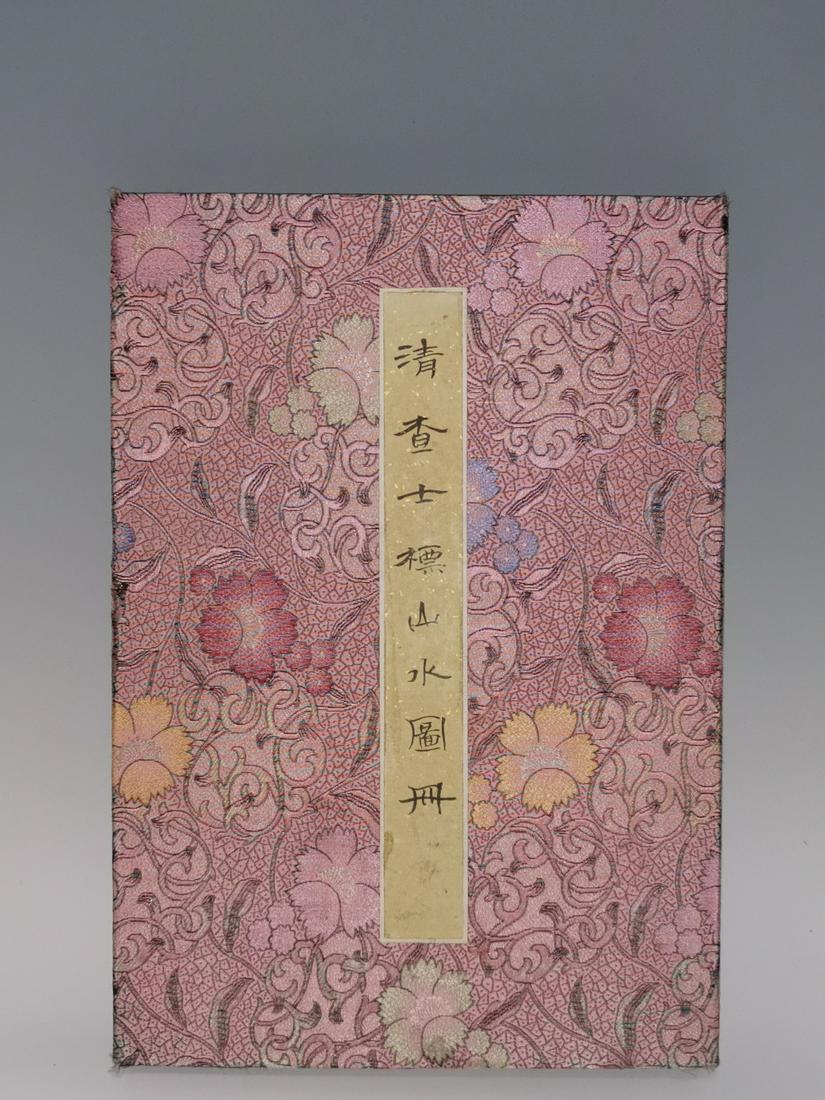 清查士標山水圖冊